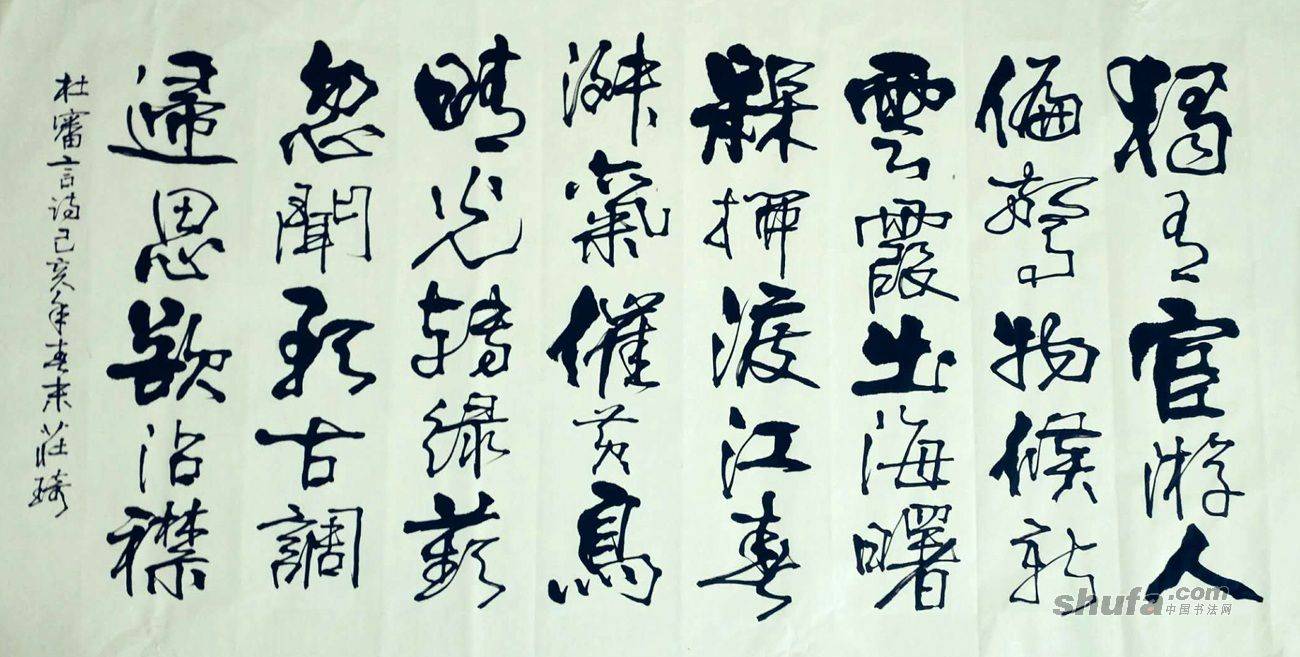 獨有宦游人
偏驚物候新
雲霞出海曙
槑柳渡江春
淑氣催黃鳥
晴光轉綠蘋
忽聞歌古調
歸思欲沾襟
杜審言詩己亥年春末莊琦
shufa.com
中国书法网